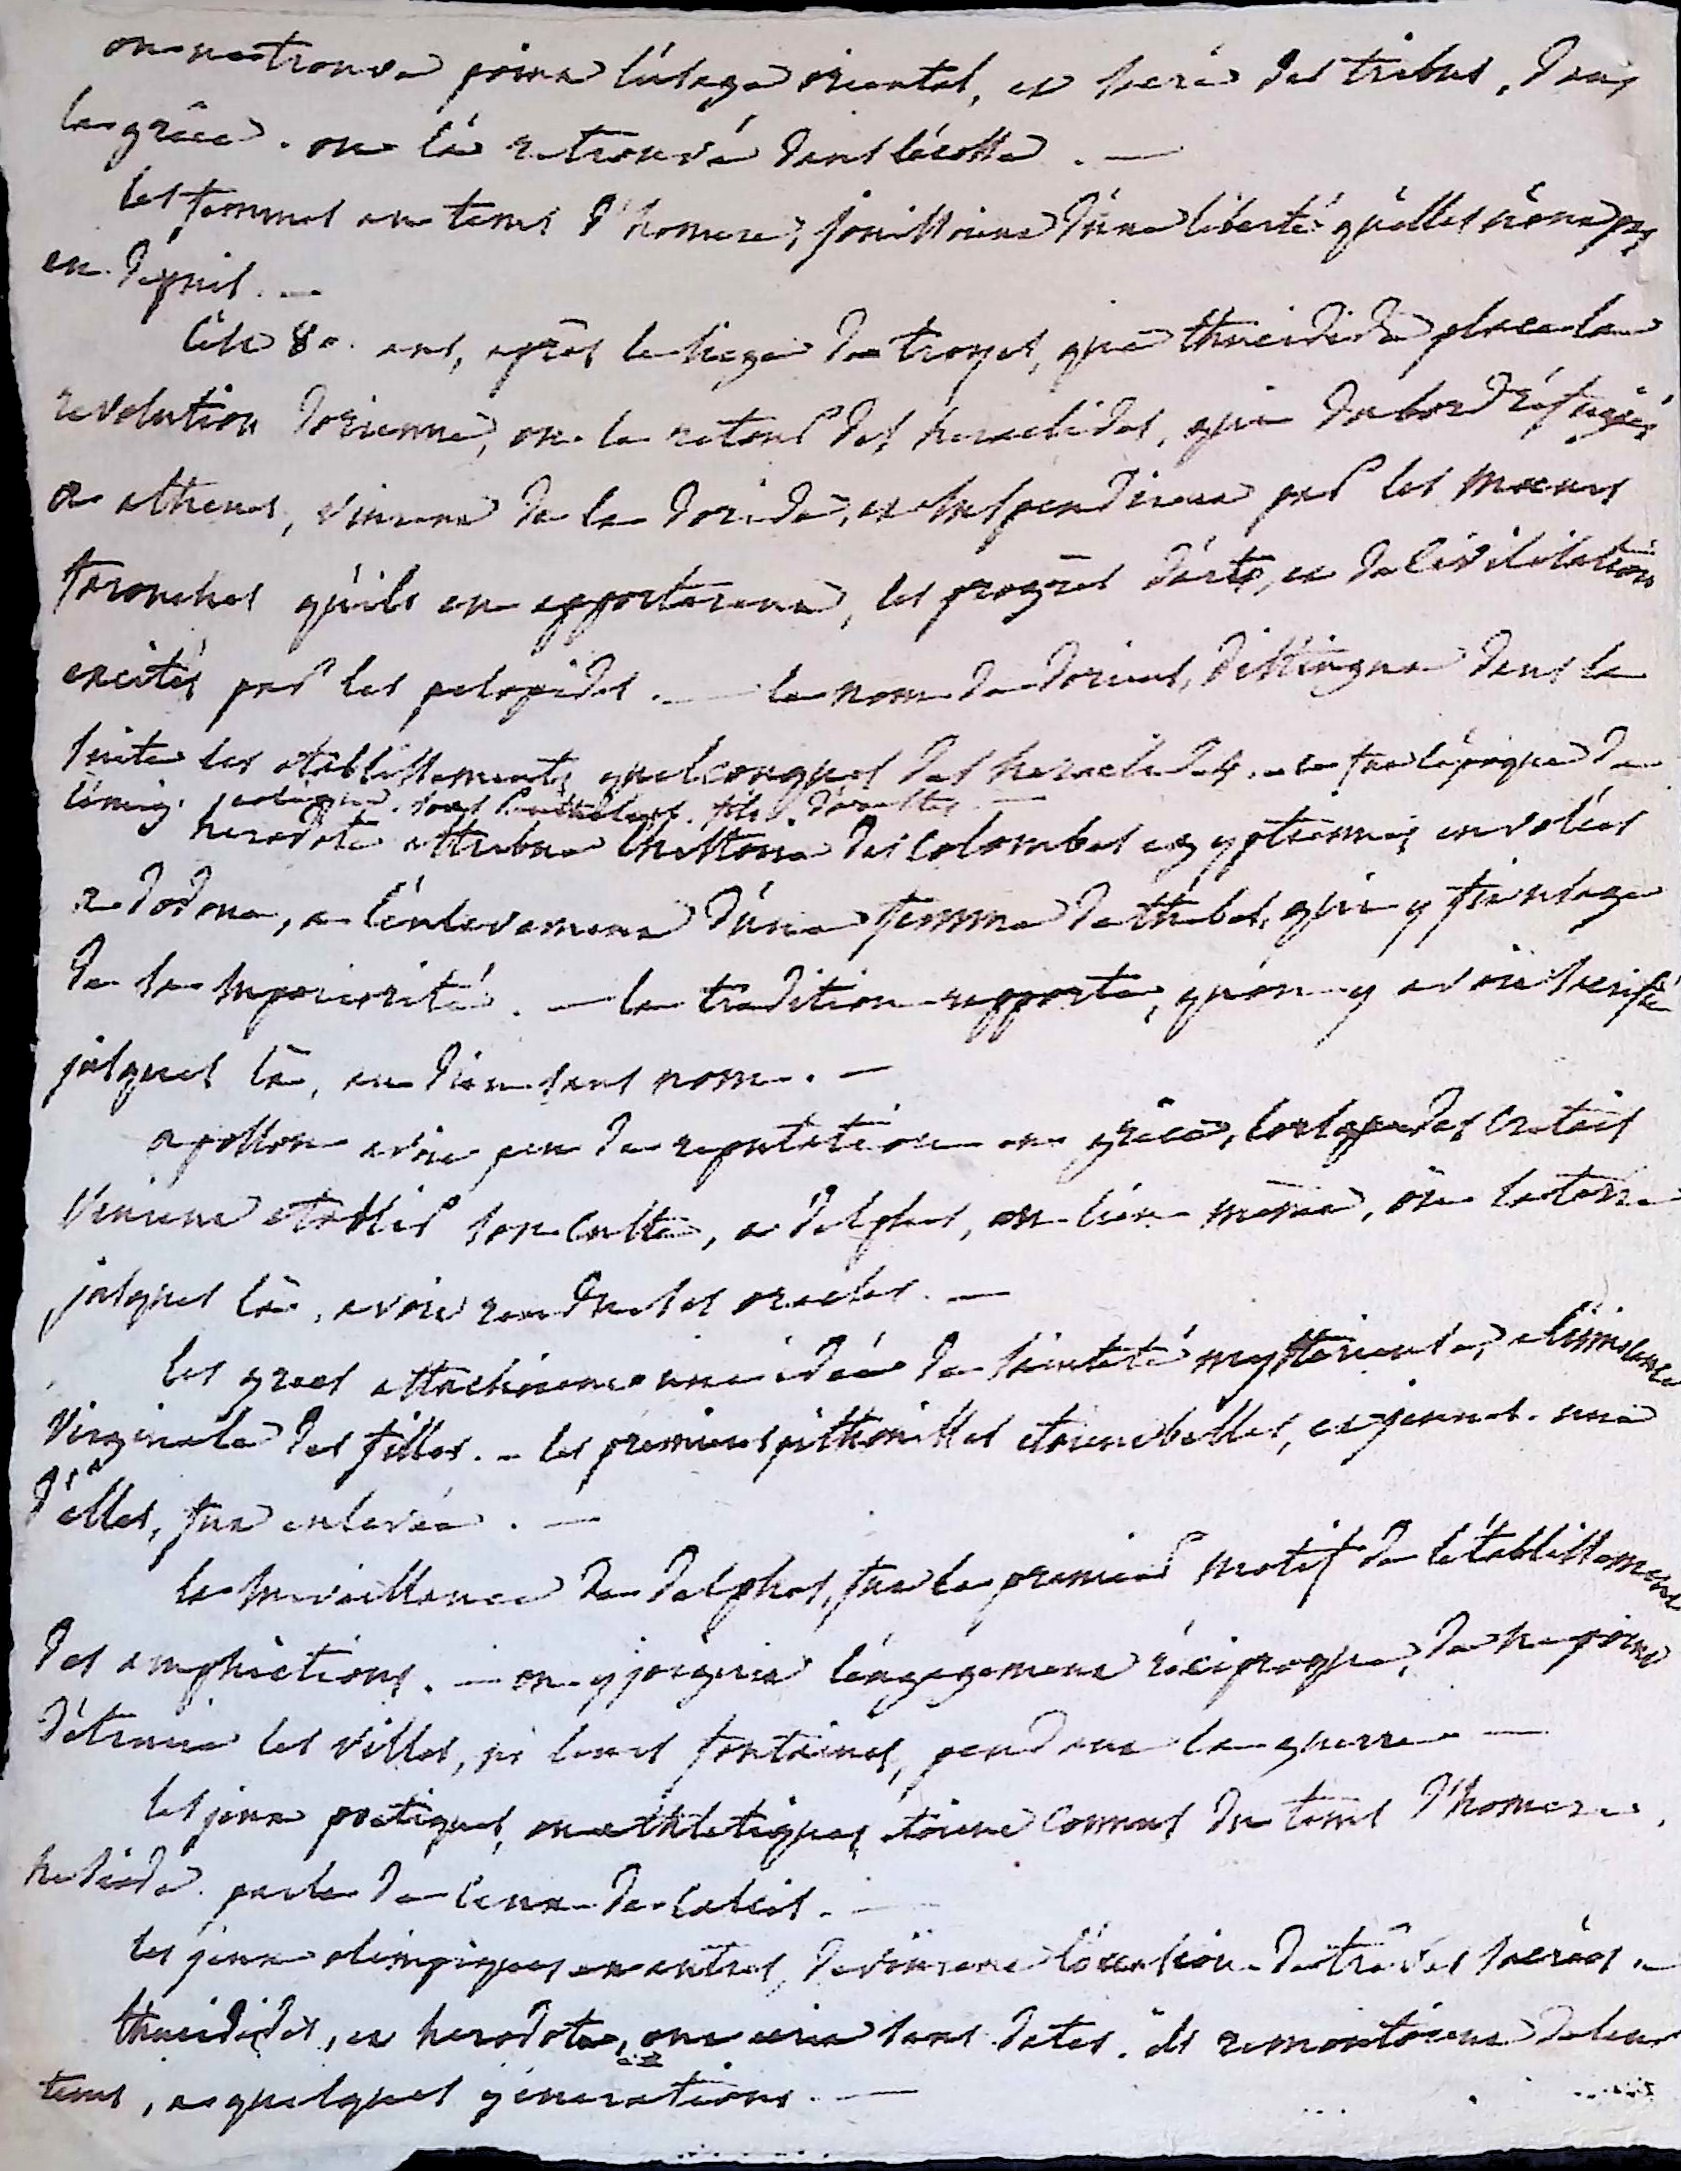 on ne trouve point l'usage oriental, et sacré des tribus, dans
la grêce. on l'a retrouvé dans l'écosse. —
les femmes au tems d'homere, jouissoient d'une liberté qu'elles n'ont pas
eu depuis. —
c'est 80. ans, après le siege de troyes, que thucidide place la
revolution dorienne, ou le retour des heraclides, qui d'abord réfugiés
a athenes, vinrent de la doride, et suspendirent par les mœurs
farouches qu'ils en apporterent, les progrès d'arts, et de civilisation
excités par les pelopides. — le nom de doriens, distingua dans la
suite les etablissements quelconques des heraclides. — ce fut l'époque de
l'émig. sous fils d'orestes. —
herodote attribue l'histoire des colombes egyptiennes envolées
a dodone, a l'enlevement d'une femme de thebes, qui y fit usage
de sa superiorité. — la tradition rapporte, qu'on y avoit sacrifié
jusques là, au dieu sans nom. —
apollon avoit peu de reputation en grêce, lorsque des cretois
vinrent etablir son culte, a delphes, au lieu même, où la terre
jusques là, avoit rendu ses oracles. —
les grecs attachoient une idée de sainteté mysterieuse, a l'innocence
virginale des filles. — les premieres pithonisses etoient belles, et jeunes. une
d'elles, fut enlevée. —
la surveillance de delphes, fut le premier motif de l'établissement
des amphictions. — on y joignit l'engagement réciproque, de ne point
détruire les villes, ni leurs fontaines, pendant la guerre —
les jeux poetiques, ou athletiques, etoient connus du tems d'homere.
hesiode parle de ceux de calcis. —
les jeux olimpiques entr'autres, devinrent l'occasion de trêves sacrées. —
thucidides, et herodote, ont ecrit sans dates. ils remontoient de leur
tems, a quelques génerations. —